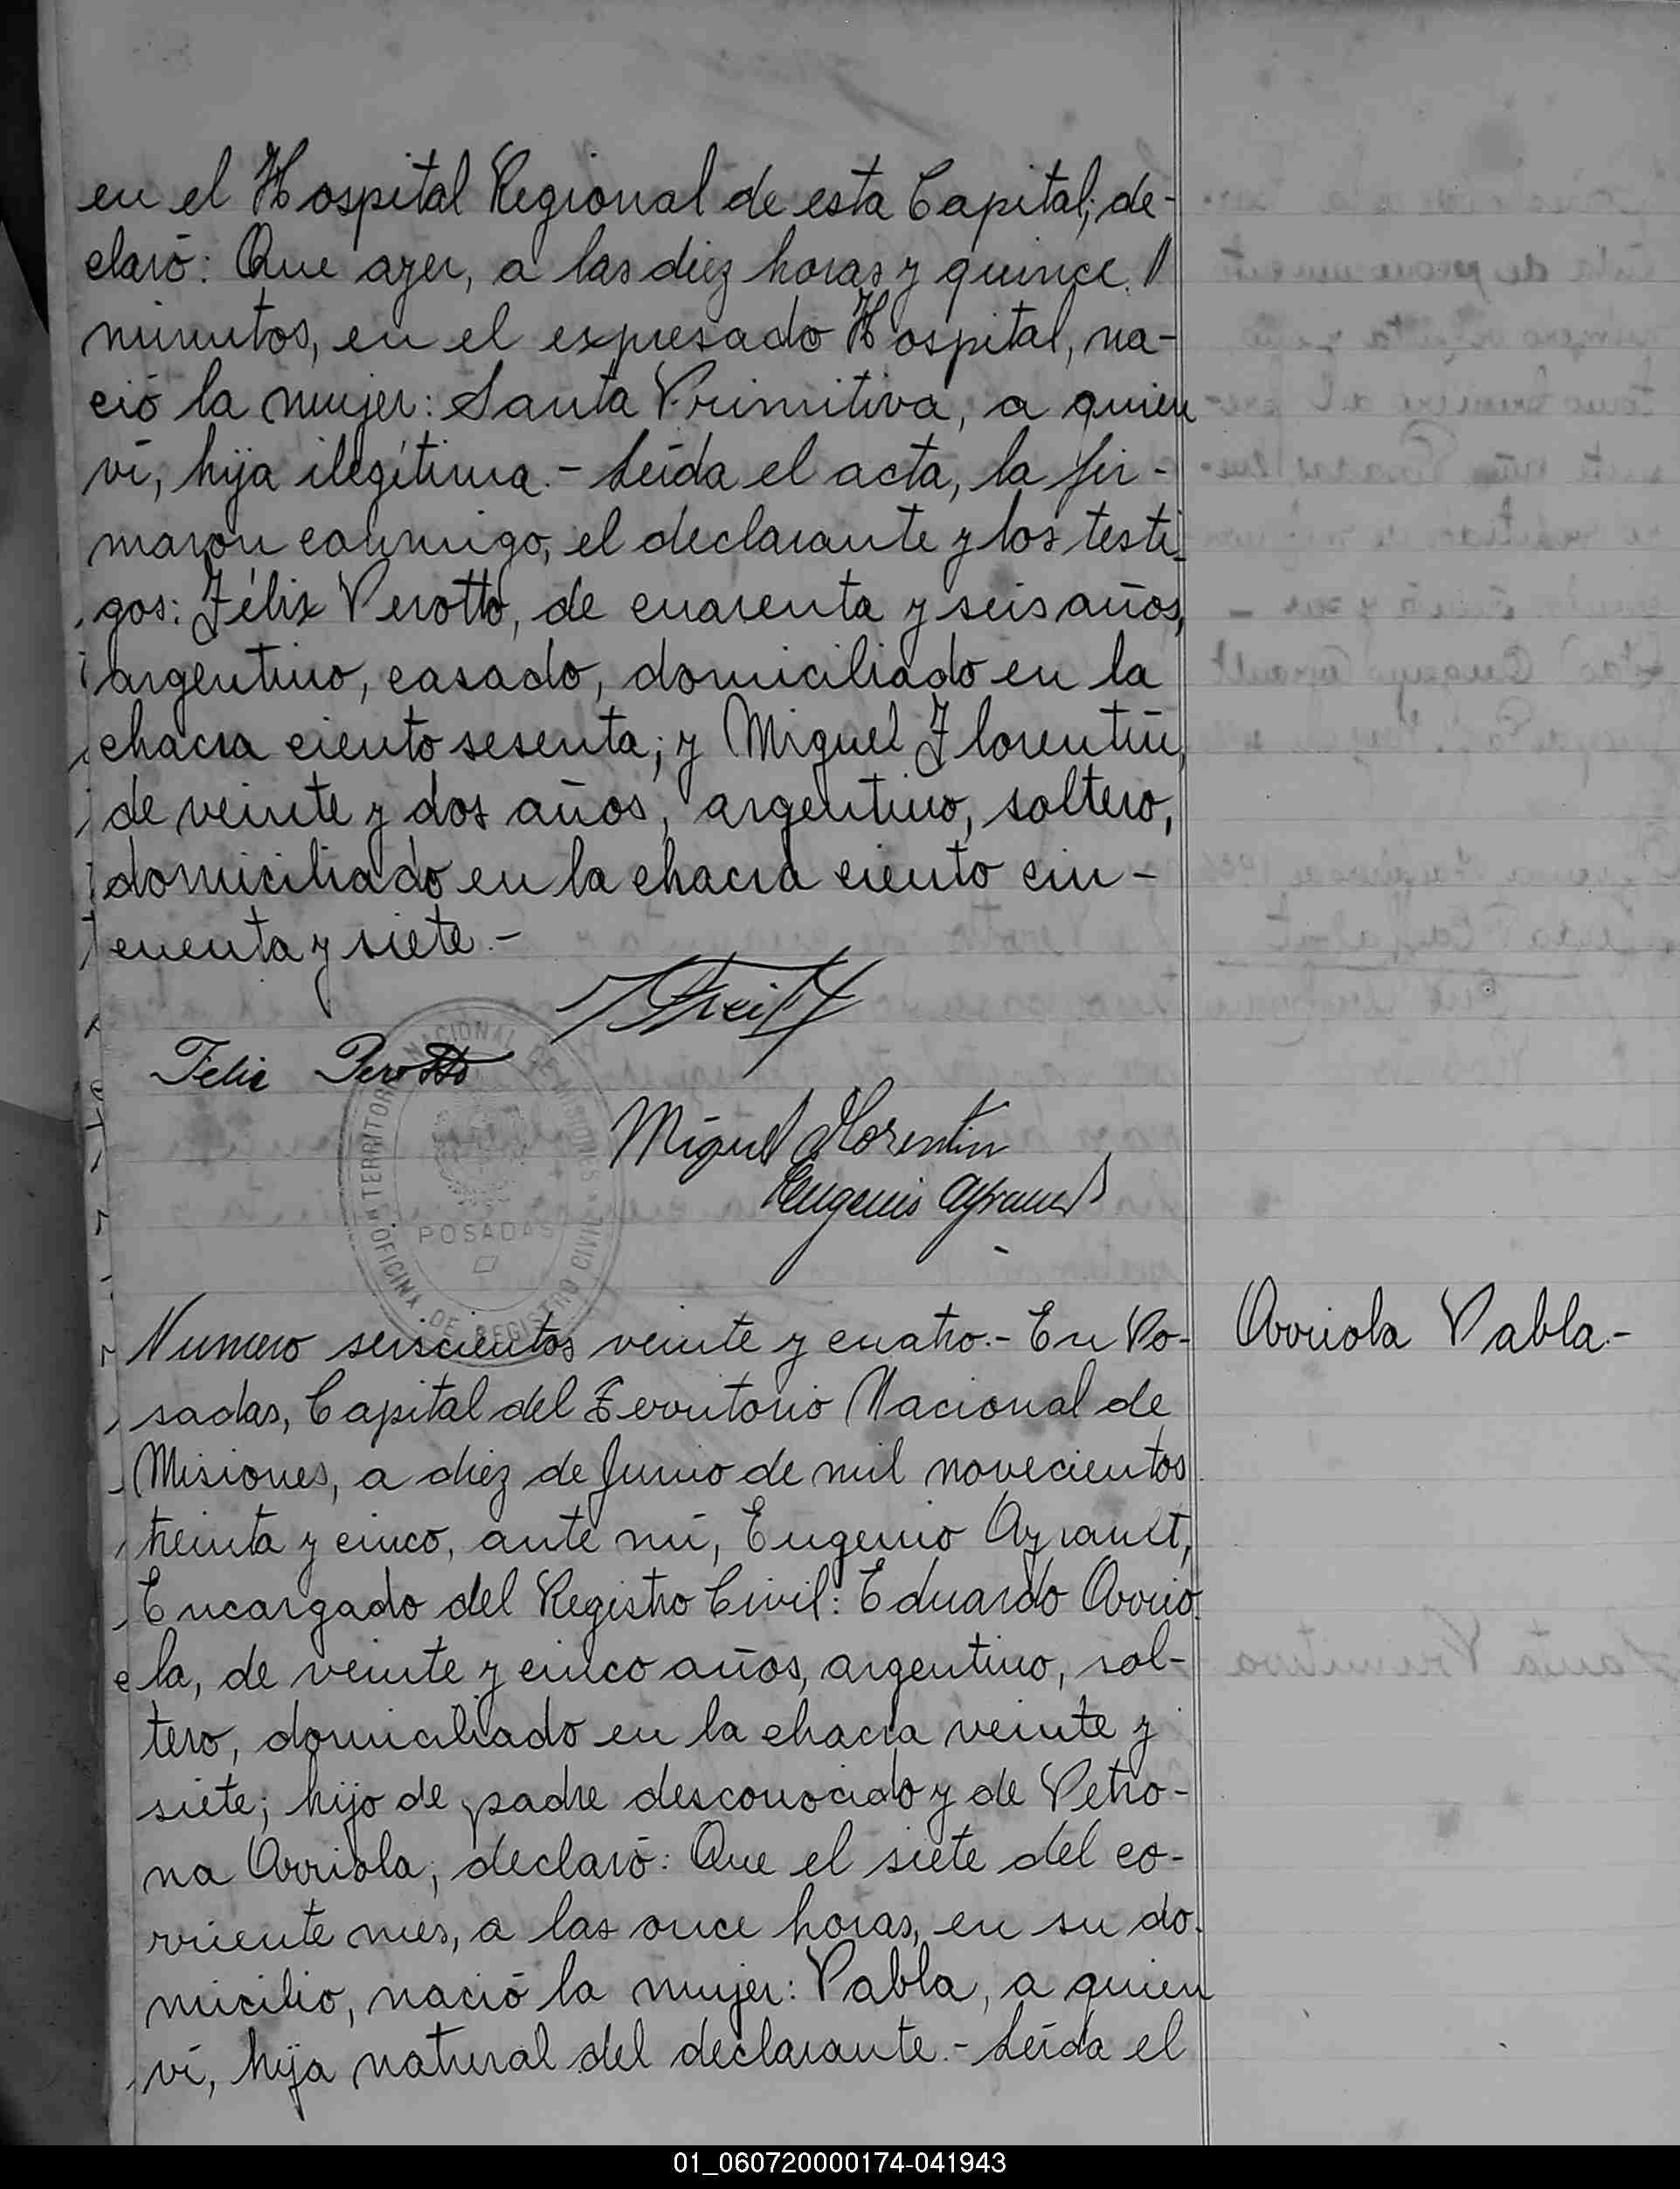 en el Hospital Regional de esta Capital; de-
claró: Que ayer, a las diez horas y quince
minutos, en el expresado Hospital, na-
ció la mujer: Santa Primitiva, a quien
ví, hija ilegítima.- Leída el acta, la fir-
maron conmigo, el declarante y los testi-
gos: Félix Perotto, de cuarenta y seis años,
argentino, casado, domiciliado en la
chacra ciento sesenta; y Miguel Florentín,
de veinte y dos años, argentino, soltero,
domiciliado en la chacra ciento cin-
cuenta y siete.-
Felix Perotto
TERRITORIO NACIONAL DE MISIONES
POSADAS
OFICINA DE REGISTRO CIVIL
Miguel Florentin
Eugenio Ayrault
Numero seiscientos veinte y cuatro.- En Po-
Arriola Pabla.-
sadas, Capital del Territorio Nacional de
Misiones, a diez de Junio de mil novecientos
treinta y cinco, ante mí, Eugenio Ayrault,
Encargado del Registro Civil: Eduardo Arrio-
la, de veinte y cinco años, argentino, sol-
tero, domiciliado en la chacra veinte y
siete; hijo de padre desconocido y de Petro-
na Arriola; declaró: Que el siete del co-
rriente mes, a las once horas, en su do-
micilio, nació la mujer: Pabla, a quien
ví, hija natural del declarante.- Leída el
01_060720000174-041943